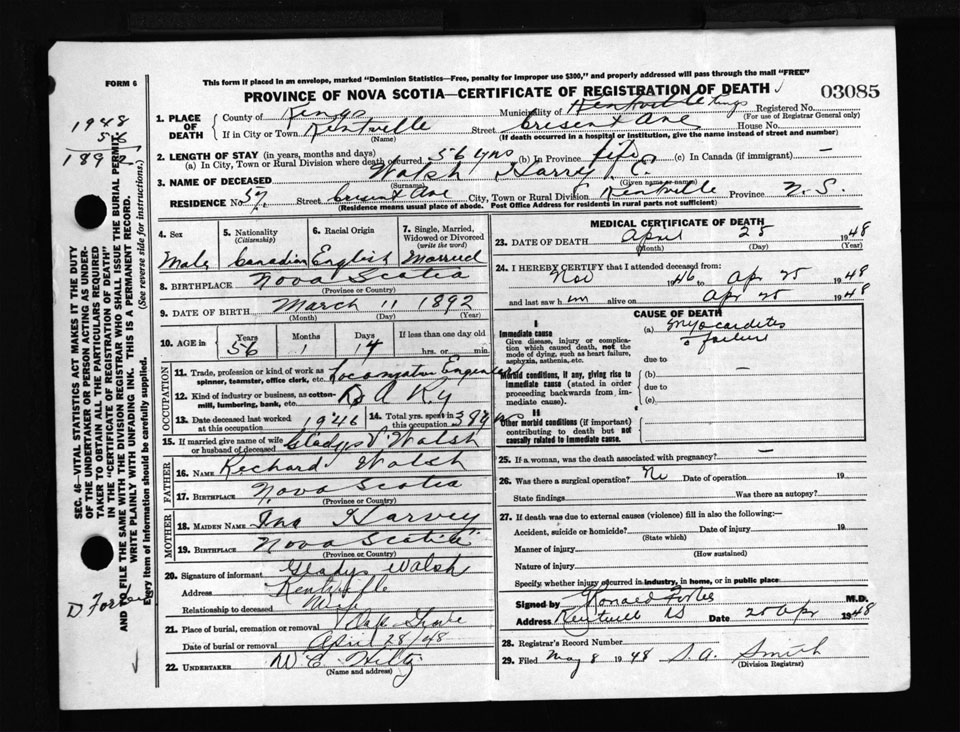 FORM 6
This form if placed in an envelope, marked "Dominion Statistics—Free, penalty for improper use $300," and properly addressed will pass through the mail "FREE"
PROVINCE OF NOVA SCOTIA—CERTIFICATE OF REGISTRATION OF DEATH 03085
1948
189
SEC. 46—VITAL STATISTICS ACT MAKES IT THE DUTY
OF THE UNDERTAKER OR PERSON ACTING AS UNDER-
TAKER TO OBTAIN ALL THE PARTICULARS REQUIRED
IN THE "CERTIFICATE OF REGISTRATION OF DEATH"
AND TO FILE THE SAME WITH THE DIVISION REGISTRAR WHO SHALL ISSUE THE BURIAL PERMIT.
WRITE PLAINLY WITH UNFADING INK. THIS IS A PERMANENT RECORD.
Every item of Information should be carefully supplied. (See reverse side for instructions.)
1. PLACE OF DEATH
County of Kings Municipality of Kentville Kings Registered No.
(For use of Registrar General only)
If in City or Town Kentville Street Cresent Ave House No.
(Name) (If death occurred in a hospital or institution, give the name instead of street and number)
2. LENGTH OF STAY (in years, months and days)
(a) In City, Town or Rural Division where death occurred 56 yrs (b) In Province life (c) In Canada (if immigrant) —
3. NAME OF DECEASED Walsh Harry C.
(Surname) (Given name or names)
RESIDENCE No. 57 Street Cres't Ave City, Town or Rural Division Kentville Province N.S.
(Residence means usual place of abode. Post Office Address for residents in rural parts not sufficient)
4. Sex Male
5. Nationality (Citizenship) Canadian
6. Racial Origin English
7. Single, Married, Widowed or Divorced (write the word) Married
8. BIRTHPLACE Nova Scotia
(Province or Country)
9. DATE OF BIRTH March 11 1892
(Month) (Day) (Year)
10. AGE in Years 56 Months 1 Days 14 If less than one day old hrs. or min.
OCCUPATION
11. Trade, profession or kind of work as spinner, teamster, office clerk, etc. Locomotive Engineer
12. Kind of industry or business, as cotton-mill, lumbering, bank, etc. D A Ry
13. Date deceased last worked at this occupation 1946
14. Total yrs. spent in this occupation 38 yrs
15. If married give name of wife or husband of deceased Gladys V Walsh
FATHER
16. NAME Richard Walsh
17. BIRTHPLACE Nova Scotia
(Province or Country)
MOTHER
18. MAIDEN NAME Ina Harvey
19. BIRTHPLACE Nova Scotia
(Province or Country)
20. Signature of informant Gladys Walsh
Address Kentville
Relationship to deceased Wife
21. Place of burial, cremation or removal Oak Grove
Date of burial or removal April 28/48
22. UNDERTAKER W E Hiltz
(Name and address)
MEDICAL CERTIFICATE OF DEATH
23. DATE OF DEATH April 25 1948
(Month) (Day) (Year)
24. I HEREBY CERTIFY that I attended deceased from:
Nov 1946 to Apr 25 1948
and last saw him alive on Apr 25 1948
CAUSE OF DEATH
I
Immediate cause
Give disease, injury or complication which caused death, not the mode of dying, such as heart failure, asphyxia, asthenia, etc.
(a) Myocarditis
failure
due to
Morbid conditions, if any, giving rise to immediate cause (stated in order proceeding backwards from immediate cause).
(b) —
due to
(c)
II
Other morbid conditions (if important) contributing to death but not causally related to immediate cause.
25. If a woman, was the death associated with pregnancy? —
26. Was there a surgical operation? No Date of operation 19
State findings Was there an autopsy?
27. If death was due to external causes (violence) fill in also the following:—
Accident, suicide or homicide? Date of injury 19
(State which)
Manner of injury
(How sustained)
Nature of injury
Specify whether injury occurred in industry, in home, or in public place
Signed by Donald Forbes M.D.
Address Kentville NS Date 25 Apr 1948
28. Registrar's Record Number
29. Filed May 8 1948 S. A. Smith
(Division Registrar)